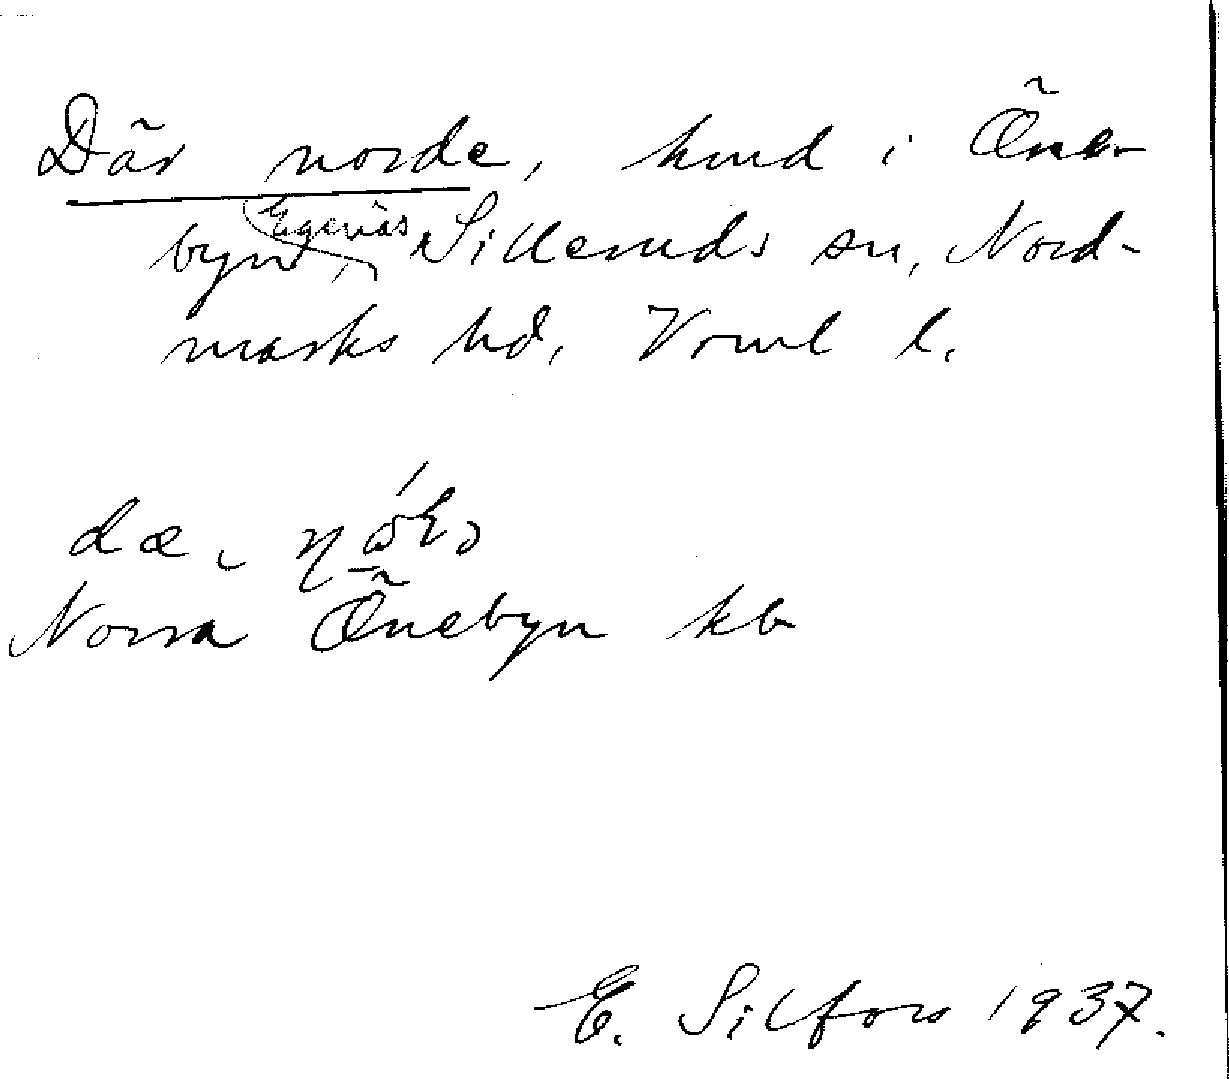 Där norde, hmd i Öne-
byn, Egenäs, Silleruds sn, Nord-
marks hd, Vrml l.
Norra Önebyn kb
E. Silfors 1937.